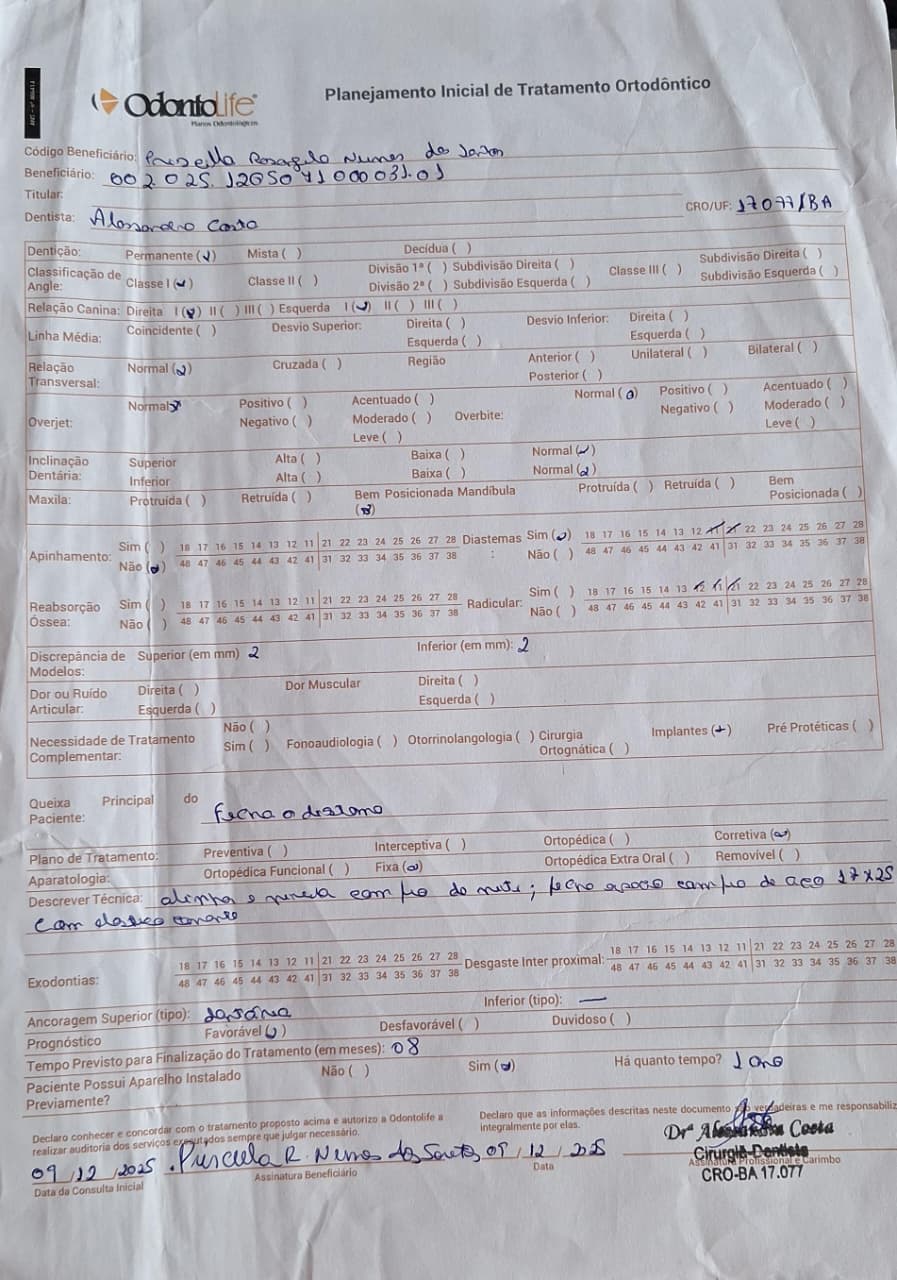 OdontoLife
Planos Odontológicos
Planejamento Inicial de Tratamento Ortodôntico
Código Beneficiário: Nunes dos Santos
Beneficiário: 002.025.
Titular:
Dentista: Alessandro Costa CRO/UF: 17077/BA
Dentição: Permanente (✓) Mista ( ) Decídua ( )
Classificação de Angle: Classe I (✓) Classe II ( ) Divisão 1ª ( ) Subdivisão Direita ( ) Classe III ( ) Subdivisão Direita ( )
Divisão 2ª ( ) Subdivisão Esquerda ( ) Subdivisão Esquerda ( )
Relação Canina: Direita I (✓) II ( ) III ( ) Esquerda I (✓) II ( ) III ( )
Linha Média: Coincidente ( ) Desvio Superior: Direita ( ) Desvio Inferior: Direita ( )
Esquerda ( ) Esquerda ( )
Relação Transversal: Normal (✓) Cruzada ( ) Região Anterior ( ) Unilateral ( ) Bilateral ( )
Posterior ( )
Overjet: Normal Positivo ( ) Acentuado ( ) Overbite: Normal (✓) Positivo ( ) Acentuado ( )
Negativo ( ) Moderado ( ) Negativo ( ) Moderado ( )
Leve ( ) Leve ( )
Inclinação Dentária: Superior Alta ( ) Baixa ( ) Normal (✓)
Inferior Alta ( ) Baixa ( ) Normal (✓)
Maxila: Protruída ( ) Retruída ( ) Bem Posicionada (✓) Mandíbula Protruída ( ) Retruída ( ) Bem Posicionada ( )
Apinhamento: Sim ( ) 18 17 16 15 14 13 12 11 21 22 23 24 25 26 27 28 Diastemas: Sim (✓) 18 17 16 15 14 13 12 11 21 22 23 24 25 26 27 28
Não (✓) 48 47 46 45 44 43 42 41 31 32 33 34 35 36 37 38 Não ( ) 48 47 46 45 44 43 42 41 31 32 33 34 35 36 37 38
Reabsorção Óssea: Sim ( ) 18 17 16 15 14 13 12 11 21 22 23 24 25 26 27 28 Radicular: Sim ( ) 18 17 16 15 14 13 12 11 21 22 23 24 25 26 27 28
Não ( ) 48 47 46 45 44 43 42 41 31 32 33 34 35 36 37 38 Não ( ) 48 47 46 45 44 43 42 41 31 32 33 34 35 36 37 38
Discrepância de Modelos: Superior (em mm) 2 Inferior (em mm): 2
Dor ou Ruído Articular: Direita ( ) Dor Muscular Direita ( )
Esquerda ( ) Esquerda ( )
Necessidade de Tratamento Complementar: Não ( )
Sim ( ) Fonoaudiologia ( ) Otorrinolangologia ( ) Cirurgia Ortognática ( ) Implantes (+) Pré Protéticas ( )
Queixa Principal do Paciente:
Plano de Tratamento: Preventiva ( ) Interceptiva ( ) Ortopédica ( ) Corretiva (✓)
Aparatologia: Ortopédica Funcional ( ) Fixa (✓) Ortopédica Extra Oral ( ) Removível ( )
Descrever Técnica: com fio de ; com fio de aço 17x25
com
Exodontias: 18 17 16 15 14 13 12 11 21 22 23 24 25 26 27 28 Desgaste Inter proximal: 18 17 16 15 14 13 12 11 21 22 23 24 25 26 27 28
48 47 46 45 44 43 42 41 31 32 33 34 35 36 37 38 48 47 46 45 44 43 42 41 31 32 33 34 35 36 37 38
Ancoragem Superior (tipo): Inferior (tipo): —
Prognóstico Favorável (✓) Desfavorável ( ) Duvidoso ( )
Tempo Previsto para Finalização do Tratamento (em meses): 08
Paciente Possui Aparelho Instalado Previamente? Não ( ) Sim (✓) Há quanto tempo? 1 ano
Declaro conhecer e concordar com o tratamento proposto acima e autorizo a Odontolife a
realizar auditoria dos serviços executados sempre que julgar necessário.
Declaro que as informações descritas neste documento são verdadeiras e me responsabiliz
integralmente por elas.
09/12/2025 Priscila R. Nunes dos Santos 09/12/2025
Data da Consulta Inicial Assinatura Beneficiário Data
Drª Alessandra Costa
Cirurgiã-Dentista
Assinatura Profissional e Carimbo
CRO-BA 17.077